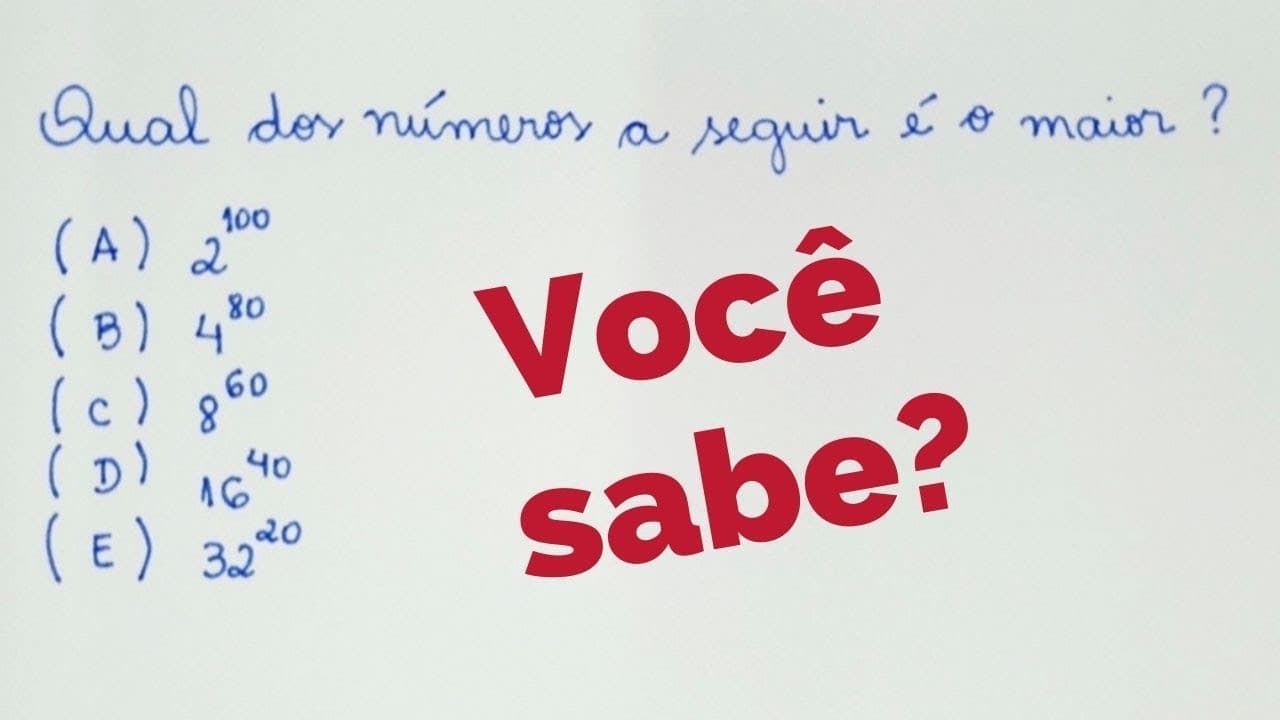 Qual dos números a seguir é o maior ?
(A) 2¹⁰⁰
(B) 4⁸⁰
(C) 8⁶⁰
(D) 16⁴⁰
(E) 32²⁰
Você
sabe?